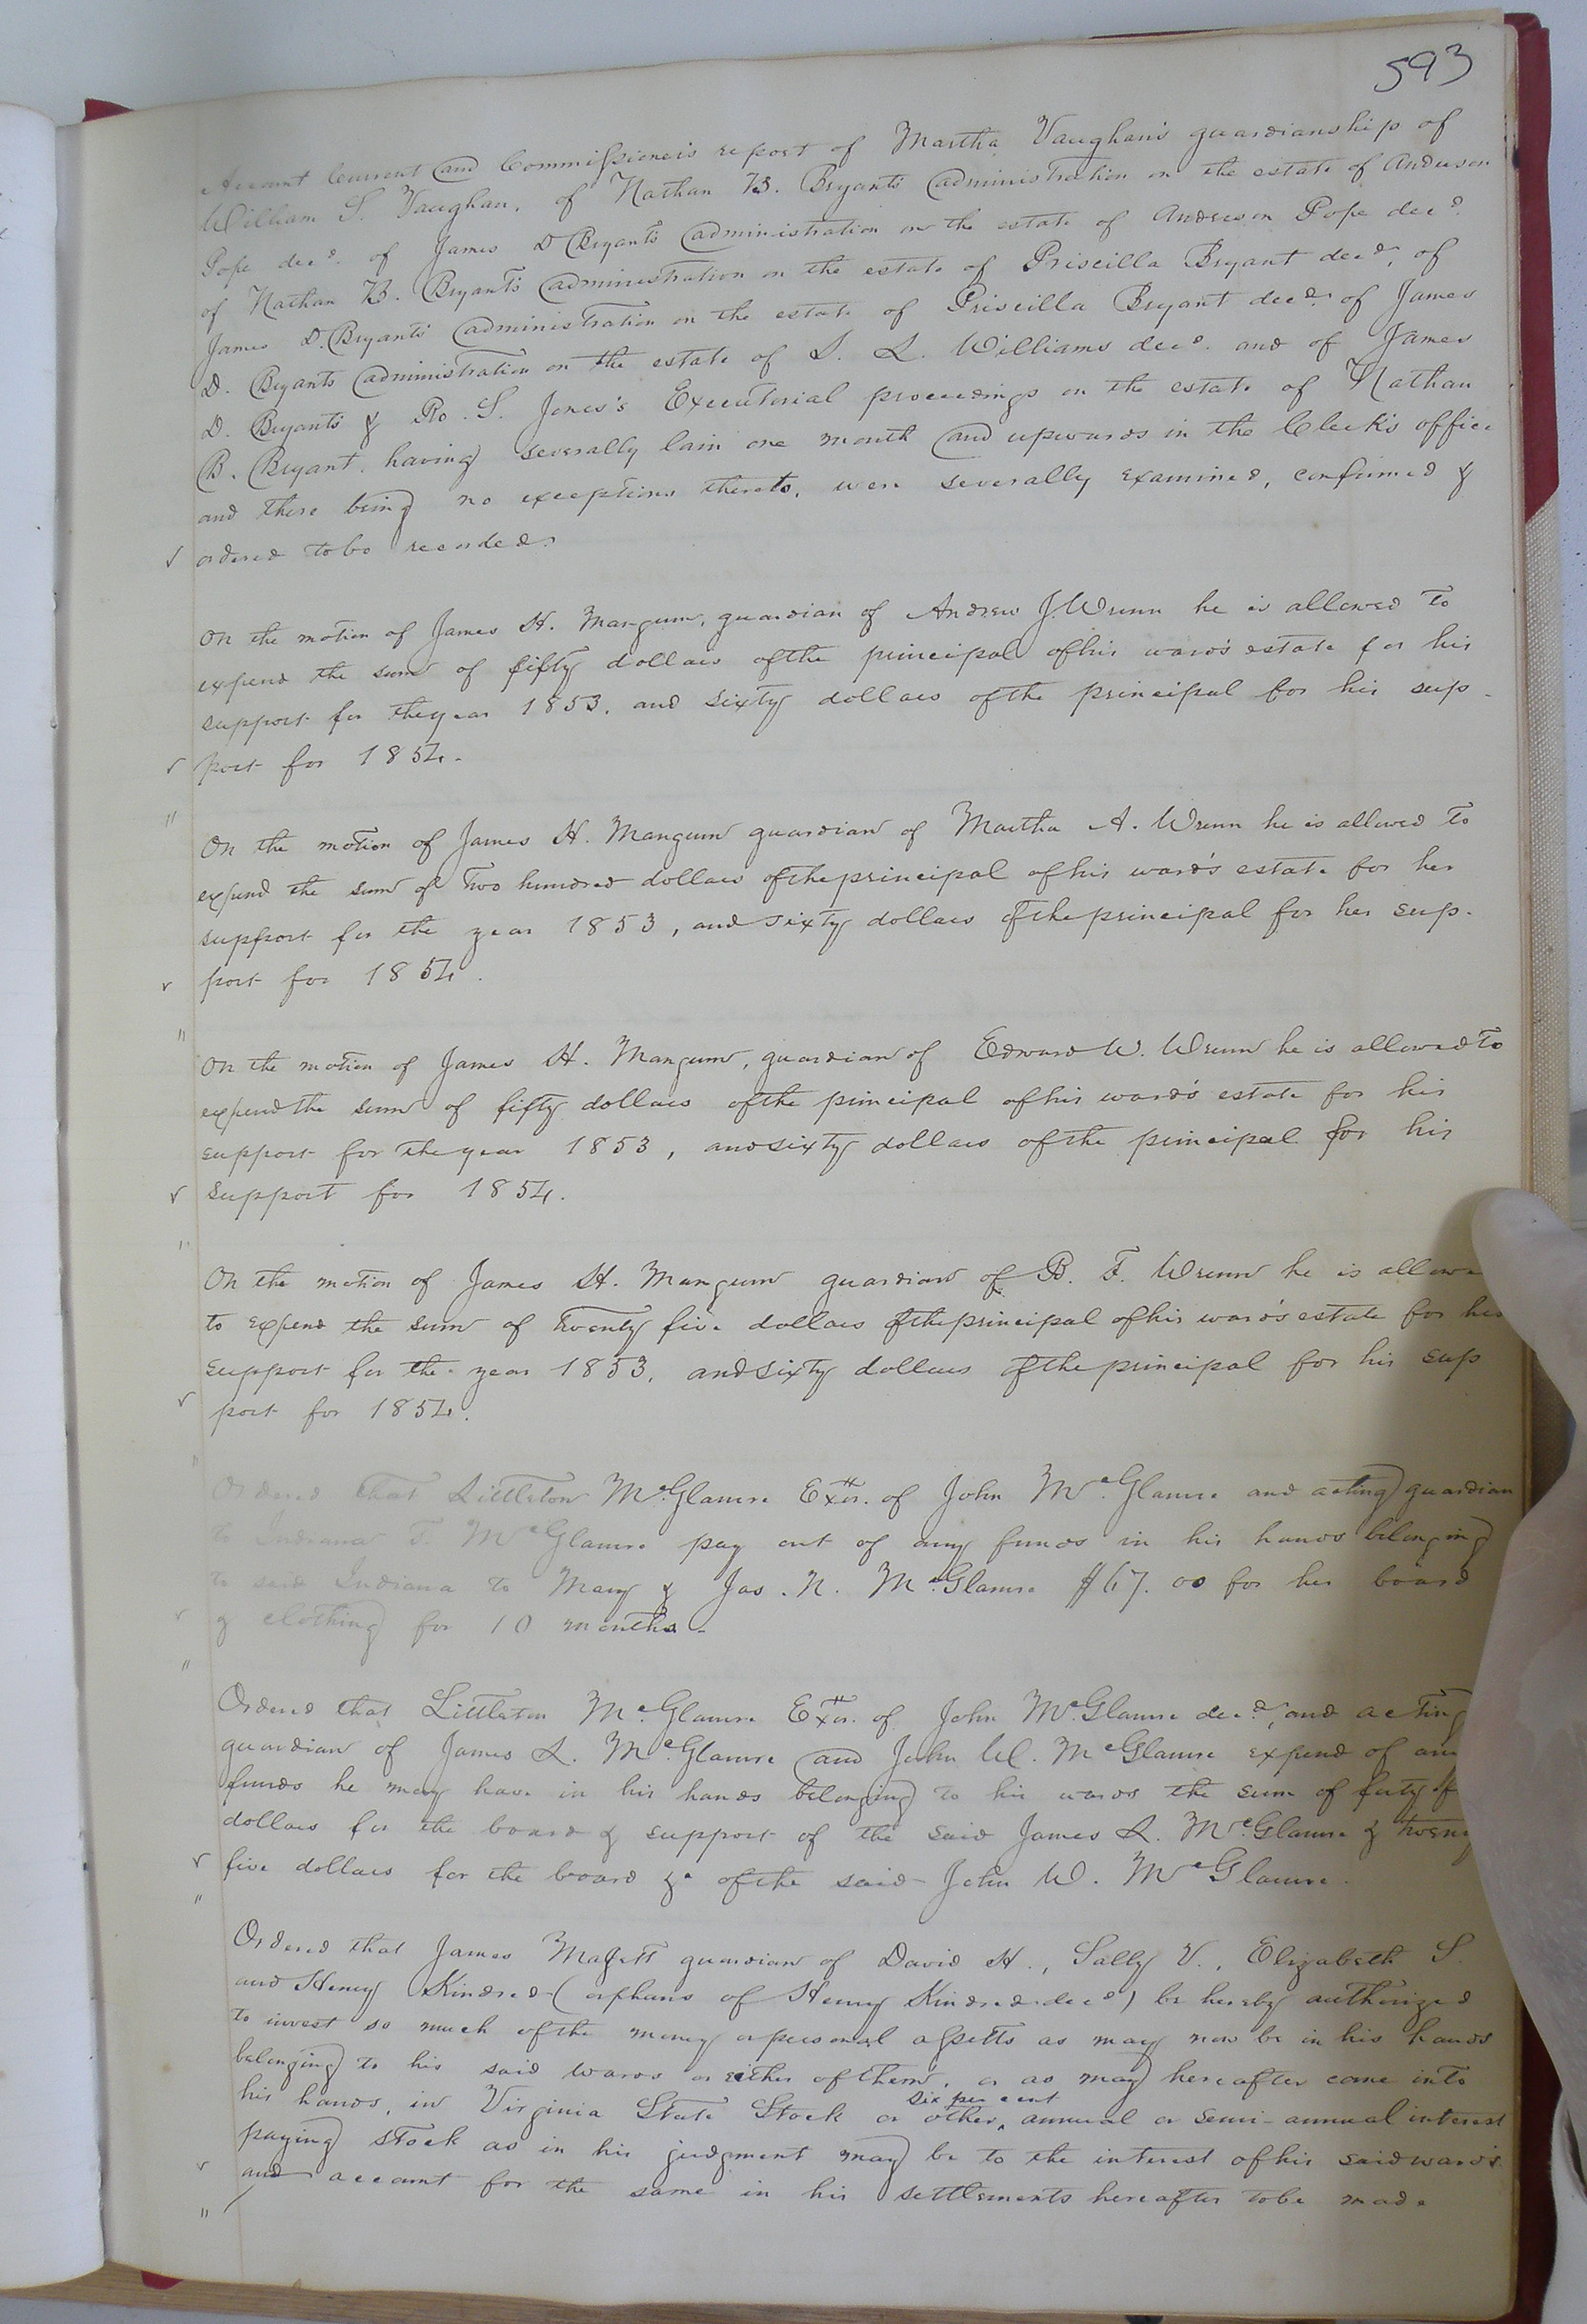 593
Account Current and Commissioner's report of Martha Vaughan's guardianship of
William S. Vaughan, of Nathan B. Bryant's administration on the estate of Anderson
Pope decd. of James D Bryant's administration on the estate of Anderson Pope decd.
of Nathan B. Bryant's administration on the estate of Priscilla Bryant decd, of
James D. Bryant's administration on the estate of Priscilla Bryant decd. of James
D. Bryants administration on the estate of S. L. Williams decd. and of James
D. Bryants & Ro. S. Jones's Executorial proceedings on the estate of Nathan
B. Bryant. having severally lain one month and upwards in the Clerk's office
and there being no exceptions thereto, were severally examined, confirmed &
ordered to be recorded.
On the motion of James H. Mangum, guardian of Andrew J. Wrenn he is allowed to
expend the sum of fifty dollars of the principal of his ward's estate for his
support for the year 1853. and sixty dollars of the principal for his sup-
port for 1854.
On the motion of James H. Mangum guardian of Martha A. Wrenn he is allowed to
expend the sum of two hundred dollars of the principal of his ward's estate for her
support for the year 1853, and sixty dollars of the principal for her sup-
port for 1854.
On the motion of James H. Mangum, guardian of Edward W. Wrenn he is allowed to
expend the sum of fifty dollars of the principal of his ward's estate for his
support for the year 1853, and sixty dollars of the principal for his
support for 1854.
On the motion of James H. Mangum guardian of B. F. Wrenn he is allowe
to expend the sum of twenty five dollars of the principal of his ward's estate for his
support for the year 1853, and sixty dollars of the principal for his sup
port for 1854.
Ordered that Littleton McGlamre Exor. of John McGlamre and acting guardian
to Indiana F. McGlamre pay out of any funds in his hands belonging
to said Indiana to Mary & Jas. N. McGlamre $67.00 for her board
& clothing for 10 months.
Ordered that Littleton McGlamre Exor. of John McGlamre decd, and acting
guardian of James L. McGlamre and John W. McGlamre expend of an
funds he may have in his hands belonging to his wards the sum of forty f
dollars for the board & support of the said James L. McGlamre & twen
five dollars for the board &c of the said John W. McGlamre.
Ordered that James Magett guardian of David H., Sally V., Elizabeth S.
and Henry Kindred (orphans of Henry Kindred decd) be hereby authorized
to invest so much of the money or personal assetts as may now be in his hands
belonging to his said wards or either of them, or as may hereafter come into
his hands, in Virginia State Stock or other six per cent annual or semi-annual interest
paying stock as in his judgment may be to the interest of his said wards
and account for the same in his settlements hereafter to be made